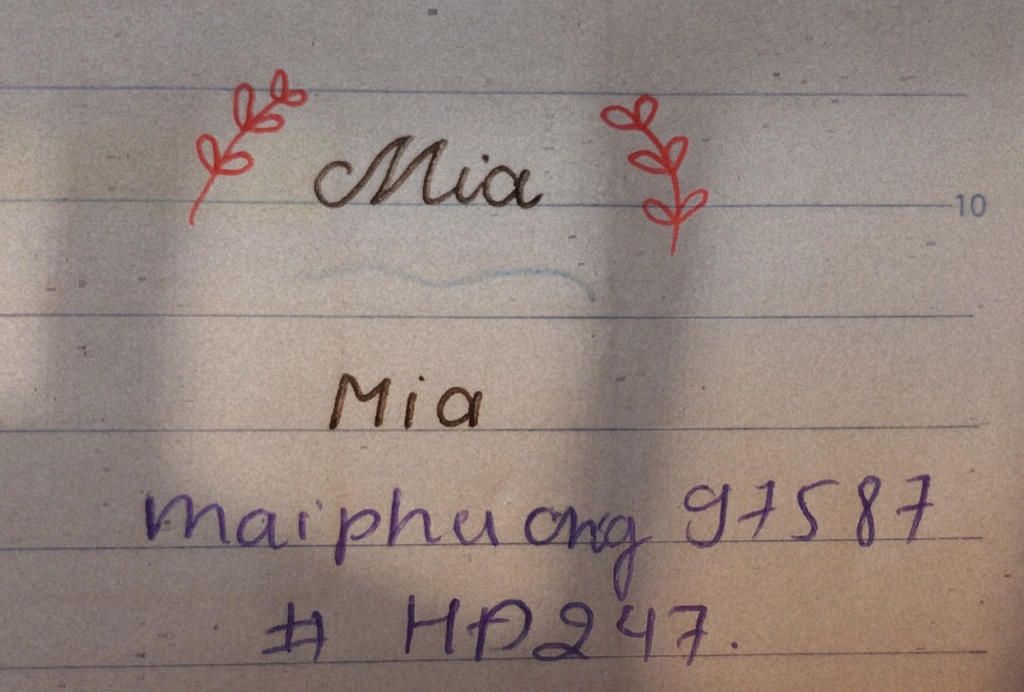 Mia
10
Mia
maiphuong 97587
# HD247.